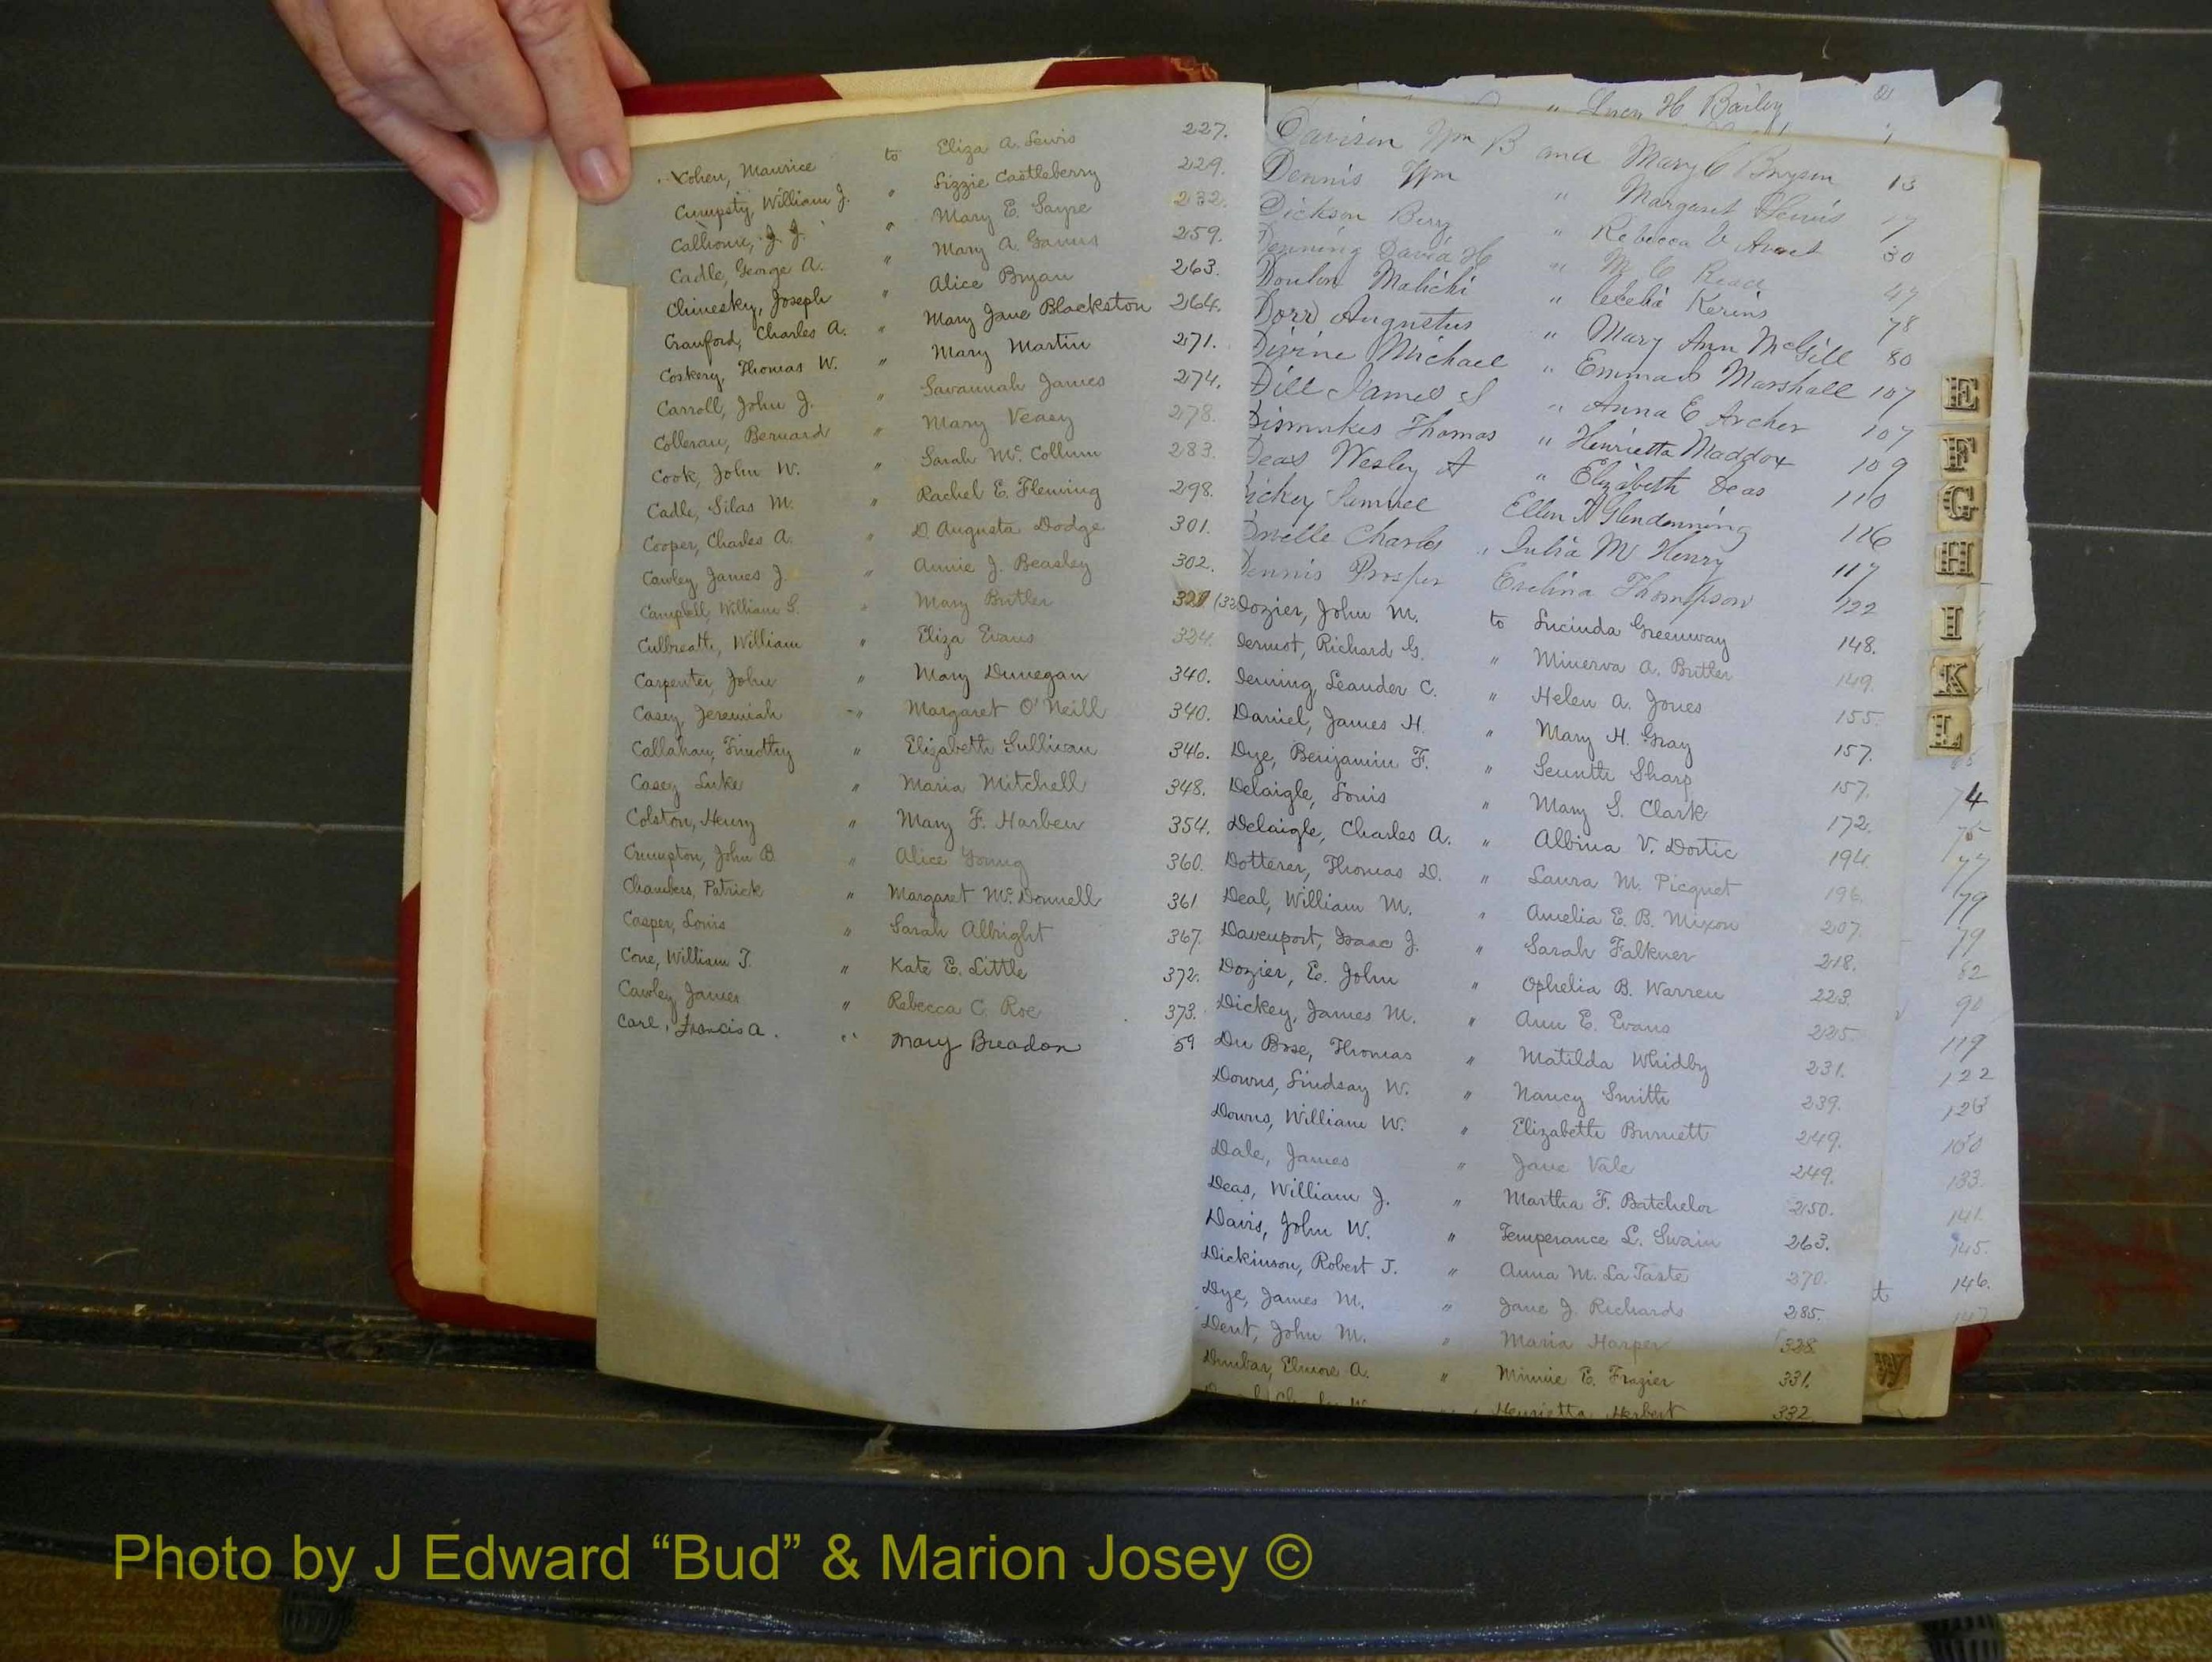 Cohen, Maurice to Eliza A. Lewis 227.
Cumpsty, William J. " Lizzie Castleberry 229.
Calhoun, J. J. " Mary E. Sayre 232.
Cadle, George A. " Mary A. Gannis 259.
Chinesky, Joseph " Alice Bryan 263.
Cranford, Charles A. " Mary Jane Blackston 264.
Coskery, Thomas W. " Mary Martin 271.
Carroll, John J. " Savannah James 274.
Colleran, Bernard " Mary Veasy 278.
Cook, John W. " Sarah Mc. Collum 283.
Cadle, Silas M. " Rachel E. Fleming 298.
Cooper, Charles A. " D. Augusta Dodge 301.
Cawley, James J. " Annie J. Beasley 302.
Campbell, William S. " Mary Butler
Culbreath, William " Eliza Evans 324.
Carpenter, John " Mary Dunegan 340.
Casey, Jeremiah " Margaret O'Neill 340.
Callahan, Timothy " Elizabeth Sullivan 346.
Casey Luke " Maria Mitchell 348.
Colston, Henry " Mary F. Harben 354.
Crumpton, John B. " Alice Young 360.
Chambers, Patrick " Margaret Mc. Donnell 361
Casper, Louis " Sarah Albright 367.
Cone, William T. " Kate E. Little 372.
Cawley James " Rebecca C. Roe 373.
Carl, Francis A. " Mary Breadon 59
" H Bailey
Davison Wm B and Mary C Bryson 13
Dennis Wm " Margaret 17
Dickson Berry " Rebecca 30
Denning David H " M. C. Read 47
Donlon Malichi " Cecelia Kerins 78
Dorr Augustus " Mary Ann McGill 80
Divine Michael " Emma Marshall 107
Dill James S " Anna E Archer 107
Dismukes Thomas " Henrietta Maddox 109
Deas Wesley A " Elizabeth Deas 110
Dickey Samuel Ellen A Glendenning 116
Charles " Julia M Henry 117
Dennis Prosper Evelina Thompson 122
Dozier, John M. to Lucinda Greenway 148.
Dermot, Richard G. " Minerva A. Butler 149.
Deming, Leander C. " Helen A. Jones 155.
Daniel, James H. " Mary H. Gray 157.
Dye, Benjamin F. " Sharp 157.
Delaigle, Louis " Mary S. Clark 172.
Delaigle, Charles A. " Albina V. Dortic 194
Dotterer, Thomas D. " Laura M. Picquet 196.
Deal, William M. " Amelia E. B. Mixon 207.
Davenport, Isaac J. " Sarah Falkner 218.
Dozier, E. John " Ophelia B. Warren 223.
Dickey, James M. " Ann E. Evans 225.
Du Bose, Thomas " Matilda Whidby 231.
Downs, Lindsay W. " Nancy Smith 239.
Downs, William W. " Elizabeth Burnett 249.
Dale, James " Jane Vale 249.
Deas, William J. " Martha F. Batchelor 250.
Davis, John W. " Temperance L. Swain 263.
Dickinson, Robert J. " Anna M. La Taste 270.
Dye, James M. " Jane J. Richards 285.
Dent, John M. " Maria Harper 328
Dunbar, Elmore A. " Minnie E. Frazier 331.
Henrietta Herbert 332
E
F
G
H
I
K
L
74
77
79
79
82
90
119
122
133.
141.
145.
146.
Photo by J Edward “Bud” & Marion Josey ©